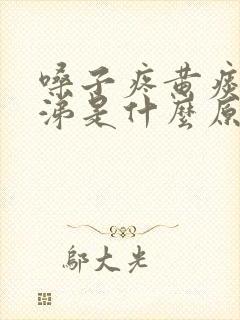 嗓子疼黄痰
涕是什麼原
鄔大光